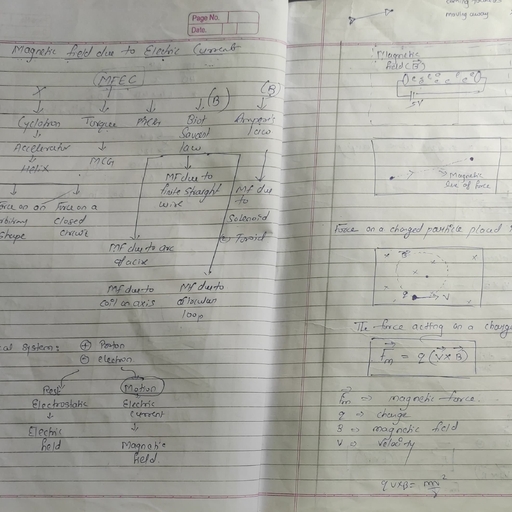 Page No.
Date.
Magnetic field due to Electric Currents
MFEC
X
(B)
(B)
Cyclotron
Torque
MCG
Biot
Savart
law
Ampere's
law
Accelerator
Helix
MCG
Force on an
Force on a
arbitrary
closed
shape
circuit
MF due to
finite straight
wire
MF due
to
Solenoid
Toroid
MF due to arc
of a circle
MF due to
coil on axis
MF due to
circular
loop
al system:
+ Proton
- electron
Rest
Motion
Electrostatic
Electric
current
Electric
field
Magnetic
field.
moving away
Magnetic
field (B)
5V
Magnetic
line of force
Force on a charged particle placed
q
V
The force acting on a charge
Fm = q (V × B)
Fm => magnetic force.
q => charge
B => magnetic field
V => velocity
qVxB = mv²